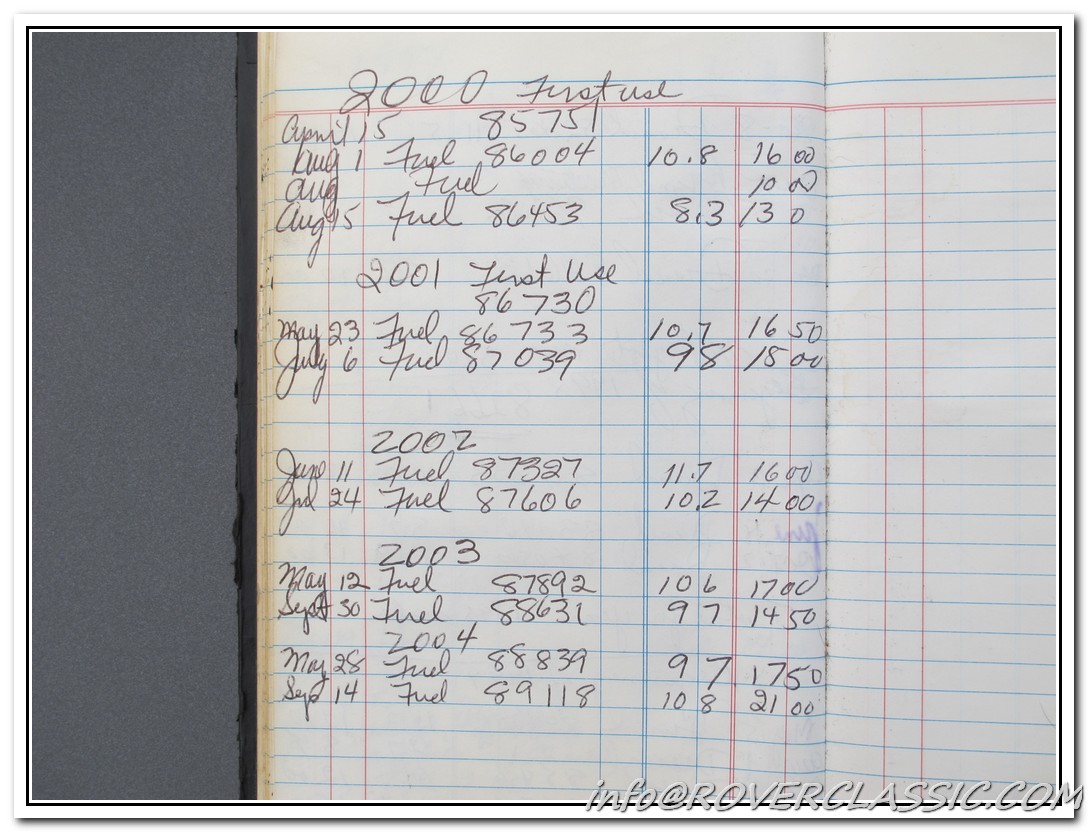 2000 First use
April 15 85751
Aug 1 Fuel 86004 10.8 16 00
Aug Fuel 10 00
Aug 15 Fuel 86453 8.3 13 0
2001 First Use
86730
May 23 Fuel 86733 10.7 16 50
July 6 Fuel 87039 9 8 15 00
2002
June 11 Fuel 87327 11.7 16 00
Jul 24 Fuel 87606 10.2 14 00
2003
May 12 Fuel 87892 10 6 17 00
Sept 30 Fuel 88631 9 7 14 50
2004
May 28 Fuel 88839 9 7 17 50
Sept 14 Fuel 89118 10 8 21 00
info@ROVERCLASSIC.COM